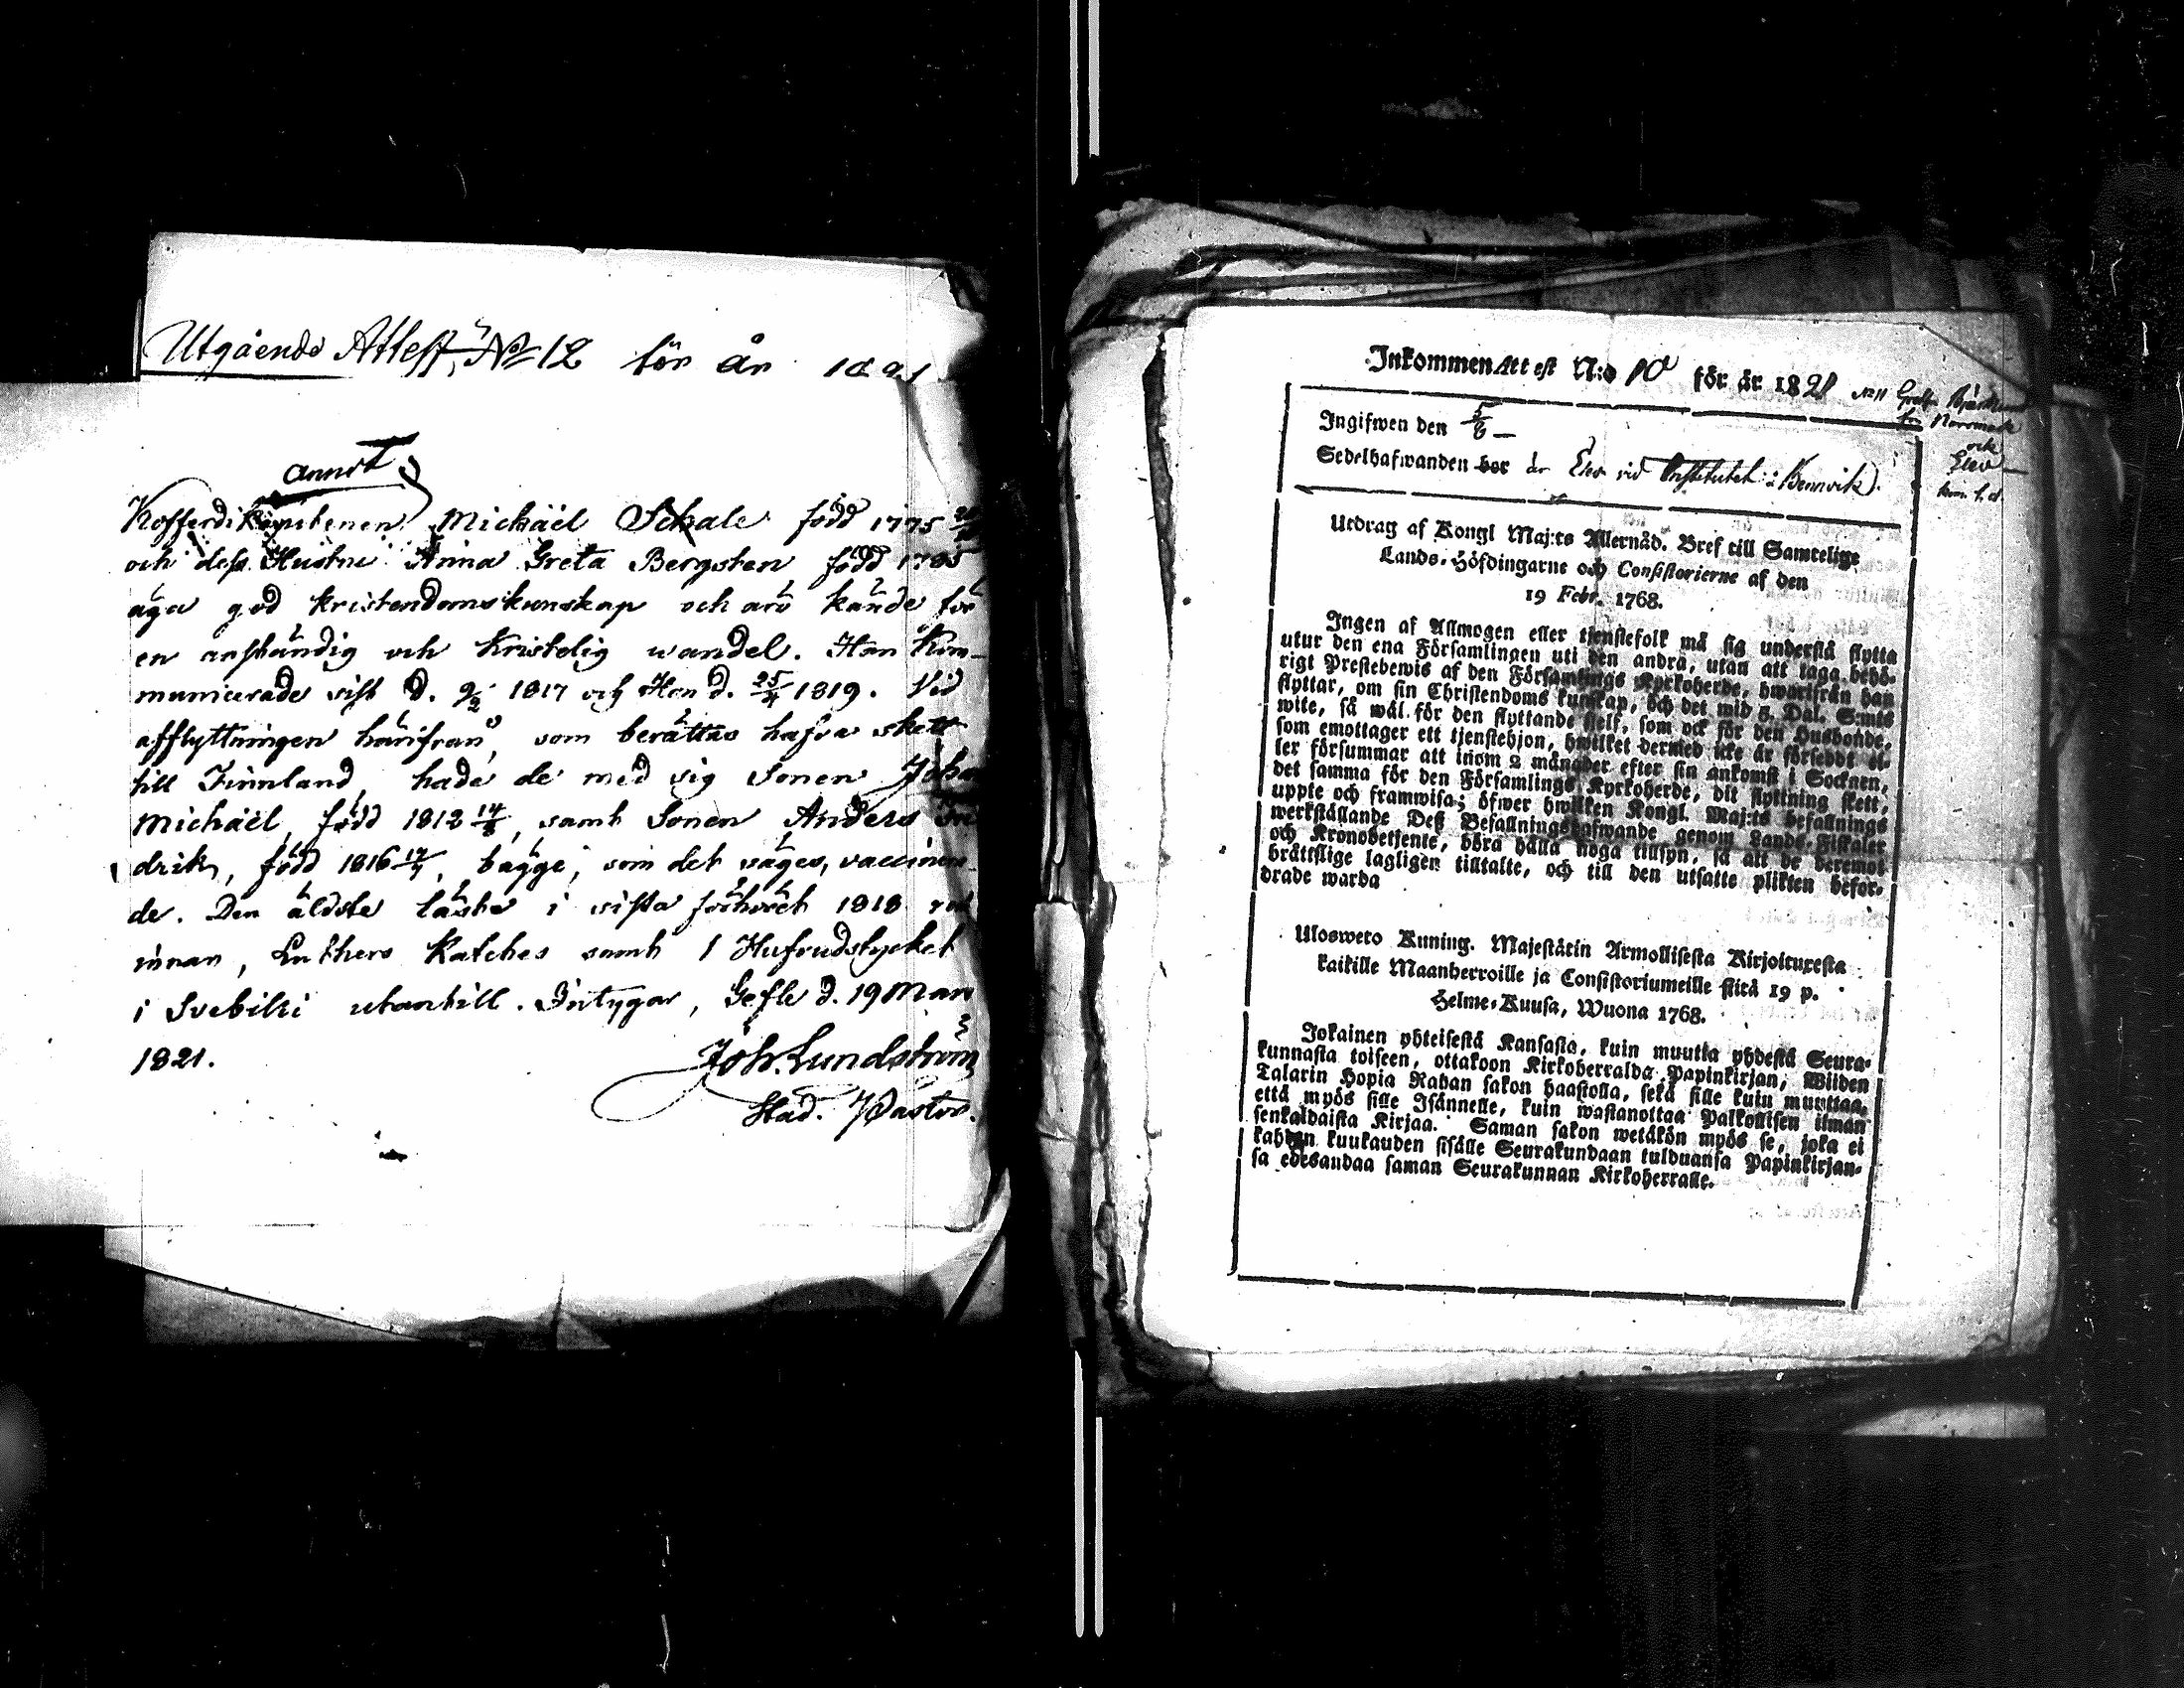 Utgående Attest, No 12 för år 1821
annot
Kofferdi Kapitenen Michäel Schale född 1775
och dess Hustru Anna Greta Bergsten född 1785
äga god kristendomskunskap och äro kände för
en anständig och kristelig wandel. Han kom-
municerade sist d. 9/2 1817 och Hon d. 25/4 1819. Vid
afflyttningen härifrån, som berättas hafva skett
till Finnland, hade de med sig Sonen Joha
Michäel, född 1812 14/8, samt Sonen Anders
drik, född 1816 17/4, bägge, som det säges, vaccinera
de. Den äldste läste i sista förhöret 1818
innan, Luthers Katches samt 1 Hufvudstycket
i Svebilii utantill. Intygar, Gefle d. 19 Mars
1821.
Joh. Lundström
Stad. Pastor.
Inkommen Attest N:o 10 för år 1821
N:o 11
ock
Elev
Ingifwen den 5/8 —
Sedelhafwanden bor är Elev vid Institutet i Bennvik.
Utdrag af Kongl Maj:ts Allernåd. Bref till Samtelige
Lands-Höfdingarne och Consistorierne af den
19 Febr. 1768.
Ingen af Allmogen eller tjenstefolk må sig understå flytta
utur den ena Församlingen uti den andra, utan att taga behö-
rigt Prestebewis af den Församlings Kyrkoherde, hwarifrån han
flyttar, om sin Christendoms kunskap, och det wid 5. Dal. S:mts
wite, så wäl för den flyttande sielf, som ock för den Husbonde,
som emottager ett tjenstehjon, hwilket dermed icke är försedt el-
ler försummar att inom 2 månader efter sin ankomst i Socknen,
det samma för den Församlings Kyrkoherde, dit flyttning skett,
uppte och framwisa; öfwer hwilken Kongl. Maj:ts befallnings
werkställande Deß Befallningshafwande genom Lands-Fiskaler
och Kronobetjente, böra hålla noga tillsyn, så att de deremot
bråttslige lagligen tilltalte, och till den utsatte plikten befor-
drade warda
Ulosweto Kuning. Majestätin Armollisesta Kirjoituxesta
kaikille Maanherroille ja Consistoriumeille siitä 19 p.
Helme-Kuusa, Wuona 1768.
Jokainen yhteisestä Kansasta, kuin muutta yhdestä Seura-
kunnasta toiseen, ottakoon Kirkoherralda Papinkirjan, Wiiden
Talarin Hopia Rahan sakon haastolla, sekä sille kuin muuttaa,
että myös sille Isännelle, kuin wastanottaa Palkollisen ilman
senkaldaista Kirjaa. Saman sakon wetäkön myös se, joka ei
kahden kuukauden sisälle Seurakundaan tulduansa Papinkirjan-
sa edesandaa saman Seurakunnan Kirkoherralle.